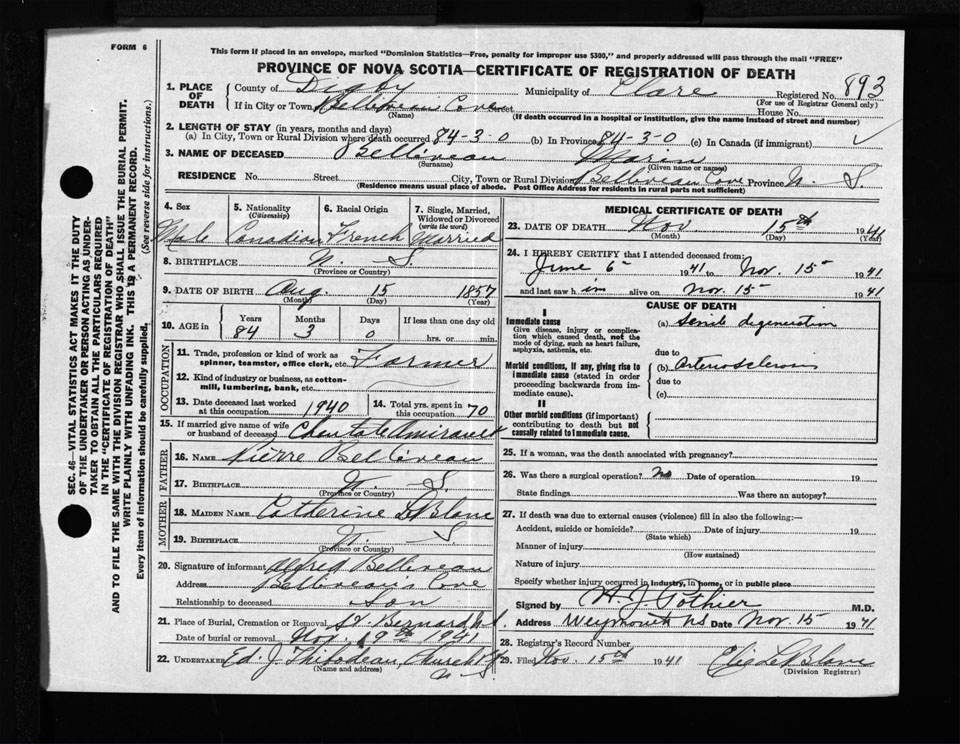 FORM 6
This form if placed in an envelope, marked "Dominion Statistics—Free, penalty for improper use $300," and properly addressed will pass through the mail "FREE"
PROVINCE OF NOVA SCOTIA—CERTIFICATE OF REGISTRATION OF DEATH
893
1. PLACE OF DEATH County of Digby Municipality of Clare Registered No.
(For use of Registrar General only)
If in City or Town Belliveau Cove Street House No.
(Name) (If death occurred in a hospital or institution, give the name instead of street and number)
2. LENGTH OF STAY (in years, months and days)
(a) In City, Town or Rural Division where death occurred 84-3-0 (b) In Province 84-3-0 (c) In Canada (if immigrant)
3. NAME OF DECEASED Belliveau
(Surname) (Given name or names)
RESIDENCE No. Street City, Town or Rural Division Belliveau Cove Province N S.
(Residence means usual place of abode. Post Office Address for residents in rural parts not sufficient)
4. Sex Male
5. Nationality (Citizenship) Canadian
6. Racial Origin French
7. Single, Married, Widowed or Divorced (write the word) Married
8. BIRTHPLACE N. S.
(Province or Country)
9. DATE OF BIRTH Aug. 15 1857
(Month) (Day) (Year)
10. AGE in Years Months Days If less than one day old
84 3 0 hrs. or min.
OCCUPATION
11. Trade, profession or kind of work as spinner, teamster, office clerk, etc. Farmer
12. Kind of industry or business, as cotton-mill, lumbering, bank, etc.
13. Date deceased last worked at this occupation 1940
14. Total yrs. spent in this occupation 70
15. If married give name of wife or husband of deceased
FATHER
16. NAME Pierre Belliveau
17. BIRTHPLACE N. S.
(Province or Country)
MOTHER
18. MAIDEN NAME Catherine LeBlanc
19. BIRTHPLACE N. S.
(Province or Country)
20. Signature of informant Alfred Belliveau
Address Belliveau's Cove
Relationship to deceased Son
21. Place of Burial, Cremation or Removal St. Bernard
Date of burial or removal Nov. 19th 1941
22. UNDERTAKER Ed. J. Thibodeau, Church Pt
N. S.
(Name and address)
MEDICAL CERTIFICATE OF DEATH
23. DATE OF DEATH Nov 15th 1941
(Month) (Day) (Year)
24. I HEREBY CERTIFY that I attended deceased from:
June 6 1941 to Nov. 15 1941
and last saw him alive on Nov. 15 1941
CAUSE OF DEATH
I
Immediate cause
Give disease, injury or complication which caused death, not the mode of dying, such as heart failure, asphyxia, asthenia, etc.
(a) Senile degeneration
due to
Morbid conditions, if any, giving rise to immediate cause (stated in order proceeding backwards from immediate cause).
(b) Arteriosclerosis
due to
(c)
II
Other morbid conditions (if important) contributing to death but not causally related to immediate cause.
25. If a woman, was the death associated with pregnancy?
26. Was there a surgical operation? No Date of operation 19
State findings Was there an autopsy?
27. If death was due to external causes (violence) fill in also the following:—
Accident, suicide or homicide? Date of injury 19
(State which)
Manner of injury
(How sustained)
Nature of injury
Specify whether injury occurred in industry, in home, or in public place
Signed by H. J. Pothier M.D.
Address Weymouth NS Date Nov. 15 1941
28. Registrar's Record Number
29. Filed Nov. 15th 1941 LeBlanc
(Division Registrar)
SEC. 46—VITAL STATISTICS ACT MAKES IT THE DUTY
OF THE UNDERTAKER OR PERSON ACTING AS UNDER-
TAKER TO OBTAIN ALL THE PARTICULARS REQUIRED
IN THE "CERTIFICATE OF REGISTRATION OF DEATH"
AND TO FILE THE SAME WITH THE DIVISION REGISTRAR WHO SHALL ISSUE THE BURIAL PERMIT.
WRITE PLAINLY WITH UNFADING INK. THIS IS A PERMANENT RECORD.
Every item of information should be carefully supplied. (See reverse side for instructions.)